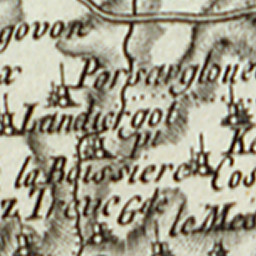 govon
x Porsarglouet
Landiergot
pu Ke
la Boissiere Cos
z Treuc Gde
le Mes